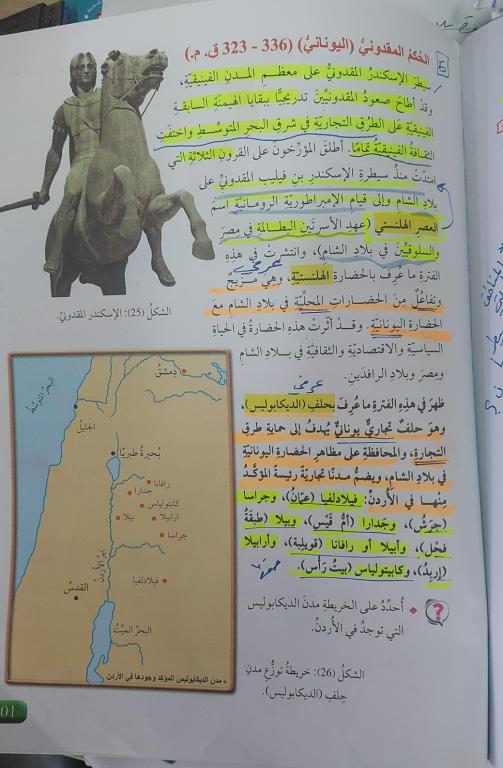 الحُكمُ المقدونيُّ (اليونانيُّ) (336 - 323 ق. م.)
سيطرَ الإسكندرُ المقدونيُّ على معظمِ المدنِ الفينيقيّةِ،
وقدْ أطاحَ صعودُ المقدونيّينَ تدريجيًّا ببقايا الهيمنةِ السابقةِ
الفينيقيّةِ على الطرُقِ التجاريّةِ في شرقِ البحرِ المتوسّطِ واختفتِ
الثقافةُ الفينيقيّةُ تمامًا. أطلقَ المؤرّخونَ على القرونِ الثلاثةِ التي
امتدّتْ منذُ سيطرةِ الإسكندرِ بنِ فيليبَ المقدونيِّ على
بلادِ الشامِ وإلى قيامِ الإمبراطوريّةِ الرومانيّةِ اسمَ
العصرِ الهلنستي (عهدِ الأسرتَينِ البطالمةِ في مصرَ
والسلوقيّينَ في بلادِ الشامِ)، وانتشرتْ في هذِهِ
الفترةِ ما عُرفَ بالحضارةِ الهلنستيّةِ، وهيَ مزيجٌ
وتفاعُلٌ منَ الحضاراتِ المحلّيّةِ في بلادِ الشامِ معَ
الحضارةِ اليونانيّةِ. وقدْ أثّرتْ هذهِ الحضارةُ في الحياةِ
السياسيّةِ والاقتصاديّةِ والثقافيّةِ في بلادِ الشامِ
ومصرَ وبلادِ الرافدَينِ.
ظهرَ في هذِهِ الفترةِ ما عُرفَ بحلفِ (الديكابوليس)،
وهوَ حلفٌ تجاريٌّ يونانيٌّ يُهدفُ إلى حمايةِ طرقِ
التجارةِ، والمحافظةِ على مظاهرِ الحضارةِ اليونانيّةِ
في بلادِ الشامِ، ويضمُّ مدنًا تجاريّةً رئيسةً المؤكّدُ
مِنها في الأردنِّ: فيلادلفيا (عمّانُ)، وجراسا
(جرشُ)، وجَدارا (أمُّ قَيْسٍ)، وبيلا (طبقةُ
فحْلٍ)، وأبيلا أو رافانا (قويلبة)، وأرابيلا
(إربدُ)، وكابيتولياس (بيتُ رَأس).
أُحدّدُ على الخريطةِ مدنَ الديكابوليس
التي توجدُ في الأُردنِّ.
الشكلُ (26): خريطةُ توزُّعِ مدنِ
حِلفِ (الديكابوليس).
الشكلُ (25): الإسكندر المقدونيّ.
البحرُ المتوسّطُ
دِمشقُ
الجليلُ
بُحيرةُ طبريّا
رافانا
جدارا
كابتولياس
ارابيلا
بيلا
جراسا
نهرُ الأردنِّ
فيلادلفيا
القدسُ
البحرُ الميّتُ
مدن الديكابوليس المؤكد وجودها في الأردن
01
5
عرفي
عرفي